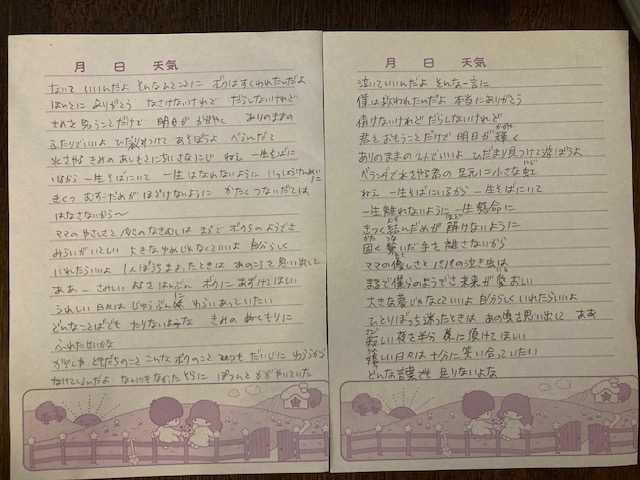 月 日 天気
ないて いいんだよ そんなひとことに ボクはすくわれたんだよ
ほんとに ありがとう なさけないけれど だらしないけれど
きみを おもうことだけで 明日が かがやく ありのままの
ふたりでいいよ ひだまりみつけて あそぼうよ ベランダで
水をやる きみの あしもとに ちいさなにじ ねえ 一生そばに
いるから 一生そばにいて 一生 はなれないように いっしょうけんめいに
きつく むすんだめが ほどけないように かたく つないだては
はなさないから〜
ママのやさしさと パパのなきむしは まるで ボクらのようでさ
みらいがいとしい 大きなゆめじゃなくていいよ 自分らしく
いれたらいいよ 1人ぼっち まよったときは あのころを 思い出して
ああー さみしい よるはんぶん ボクに あずけてほしい
うれしい 日々は じゅうぶんに わらいあっていたい
どんなことばでも たりないよな きみの ぬくもりに
ふれたせいかな
家族や ともだちのこと こんな ボクのこと いつも だいじに わらうから
なけてくるんだよ
月 日 天気
泣いていいんだよ そんな一言に
僕は救われたんだよ 本当にありがとう
情けないけれど だらしないけれど
君をおもうことだけで 明日が輝く
ありのままの 二人でいいよ ひだまり見つけて 遊ぼうよ
ベランダで水をやる君の 足元に小さな虹
ねえ 一生そばにいるから 一生そばにいて
一生離れないように 一生懸命に
きつく結んだめが 解けないように
固く繋いだ手を 離さないから
ママの優しさと パパの泣き虫は
まるで僕らのようでさ 未来が愛おしい
大きな夢じゃなくていいよ 自分らしく いれたらいいよ
ひとりぼっち 迷ったときは あの頃を思い出して ああ
寂しい夜を半分 僕に預けてほしい
嬉しい日々は十分に 笑い合っていたい
どんな言葉でも 足りないよな